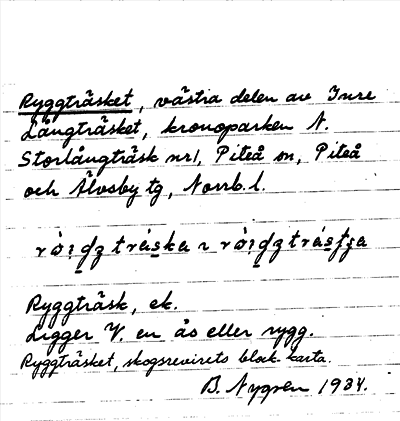 Ryggträsket, västra delen av Inre
Långträsket, kronoparken N.
Storlångträsk nr1, Piteå sn, Piteå
och Älvsby tg, Norrb.l.
Ryggträsk, ek.
Ligger V. en ås eller rygg.
Ryggträsket, skogsrevirets block karta.
B. Nygren 1934.